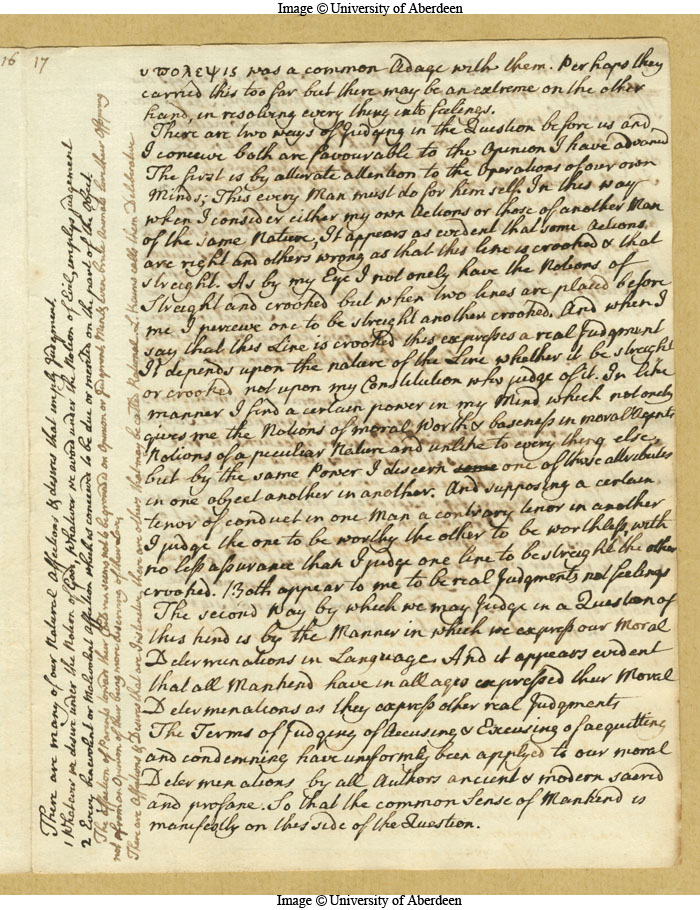 Image © University of Aberdeen
16 17
υπολεψις was a common Adage with them. Perhaps they
carried this too far but there may be an extreme on the other
hand, in resolving every thing into feelings.
There are two ways of Judging in the Question before us and
I conceive both are favourable to the Opinion I have advanced
The first is by accurate attention to the Operations of our own
Minds; This every Man must do for himself. In this way
when I consider either my own Actions or those of another Man
of the same Nature, It appears as evident that some Actions
are right and others wrong as that this line is crooked & that
streight. As by my Eye I not onely have the Notions of
Streight and crooked but when two lines are placed before
me I perceive one to be streight another crooked. And when I
say that this Line is crooked this expresses a real Judgment
It depends upon the nature of the Line whether it be streight
or crooked not upon my Constitution who judge of it. In like
manner I find a certain power in my Mind which not onely
gives me the Notions of moral Worth & baseness in moral Agents
Notions of a peculiar Nature and unlike to every thing else,
but by the same Power I discern one of these attributes
in one object another in another. And supposing a certain
tenor of conduct in one Man a contrary tenor in another
I judge the one to be worthy the other to be worthless, with
no less assurance than I judge one line to be streight the other
crooked. Both appear to me to be real Judgments not feelings
The second Way by which we may Judge in a Question of
this kind is by the Manner in which we express our Moral
Determinations in Language. And it appears evident
that all Mankind have in all ages expressed their Moral
Determinations as they express other real Judgments
The Terms of Judging of Accusing & Excusing of acquitting
and condemning have uniformly been applyed to our moral
Determinations by all Authors ancient & modern sacred
and profane. So that the common Sense of Mankind is
manifestly on this side of the Question.
There are many of our Natural Affections & desires that imply Judgment.
1 Whatever we desire under the Notion of Good, whatever we avoid under the Notion of Evil, employs Judgement
2 Every benevolent or Malevolent Affection which is conceived to be due or merited on the part of the object.
The affection of Parents toward their Children seems not to be grounded on Opinion or Judgment. Mankind & even brute Animals love their Ofspring
not from an Opinion of their being more deserving of their Love,
There are Affections & Desires that are Instinctive, there are others that may be called Rational. L. Kaims calls them Deliberative
Image © University of Aberdeen